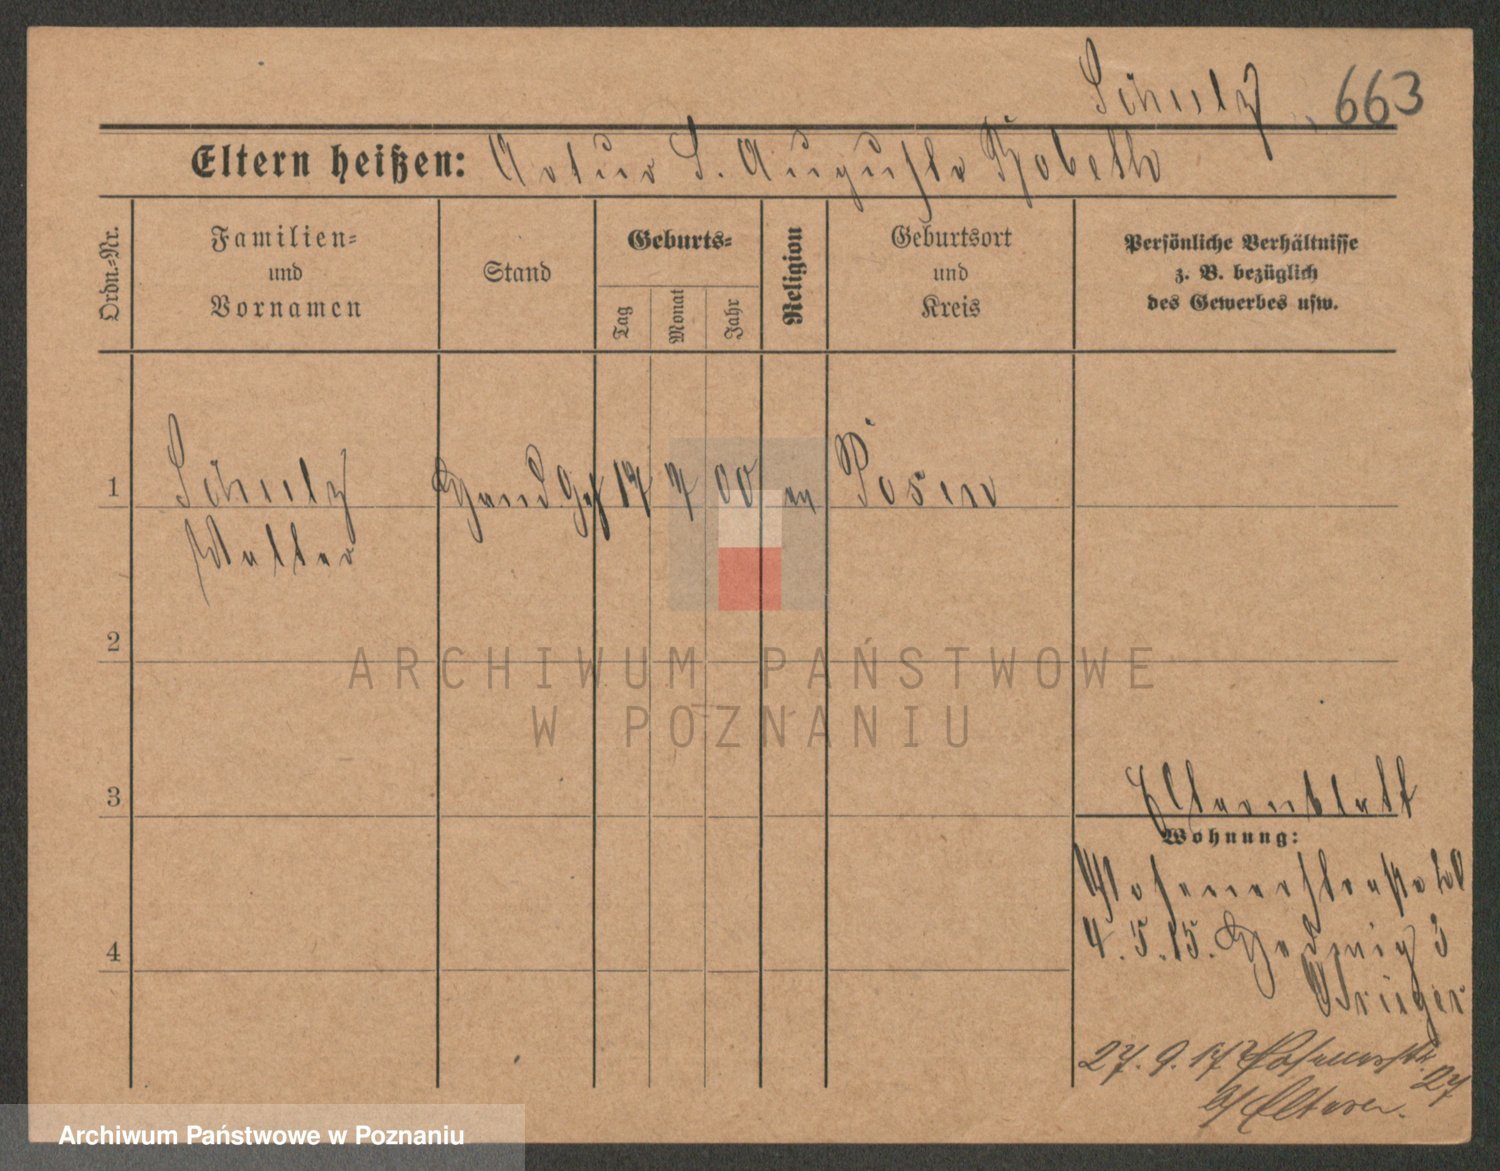 Schulz 663
Eltern heißen: Artur S. Auguste
Ordn.-Nr.
Familien-
und
Vornamen
Stand
Geburts-
Tag
Monat
Jahr
Religion
Geburtsort
und
Kreis
Persönliche Verhältnisse
z. B. bezüglich
des Gewerbes usw.
1 Schulz Hand. Geh 17 7 00 ev Posen
Walter
2
ARCHIWUM PAŃSTWOWE
W POZNANIU
3
Elternblatt
Wohnung:
Posenerstraße
4. 5. 15. Hedwig 3
4
Krüger
27. 9. 17 Posenerstr. 27
b/ Eltern.
Archiwum Państwowe w Poznaniu